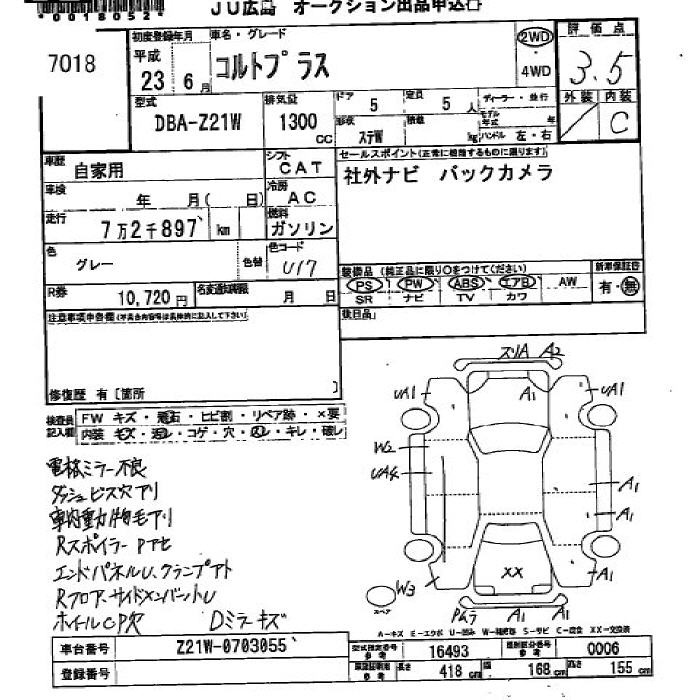 *0018052*
JU広島 オークション出品申込書
7018
初度登録年月
平成
23年 6月
車名・グレード
コルトプラス
2WD
4WD
評価点
3.5
外装 内装
C
型式
DBA-Z21W
排気量
1300 CC
ドア 5
定員 5人
ディーラー・並行
形状 ステW
積載 kg
モデル年式 年
ハンドル 左・右
車歴 自家用
シフト CAT
車検 年 月( 日)
冷房 AC
走行 7万2千897 km
燃料 ガソリン
色 グレー
色替
色コード U17
R券 10,720円
名変通知期限 月 日
セールスポイント(正常に相当するものに限ります)
社外ナビ バックカメラ
装備品 (純正品に限り○をつけてください)
PS PW ABS エアB AW
SR ナビ TV カワ
新車保証書
有・無
後日品
注意事項申告欄(不具合内容等は具体的に記入して下さい)
修復歴 有 [箇所 ]
検査員記入欄
FW キズ・飛石・ヒビ割・リペア跡・×要
内装 キズ・汚レ・コゲ・穴・スレ・キレ・破レ
電格ミラー不良
ダッシュビス穴アリ
車内動物毛アリ
Rスポイラー Pアセ
エンドパネルU、クランプアト
Rフロア、サイドメンバーントU
ホイルCP欠 Dミラーキズ
スリA A2
UA1 A1 UA1
W2
UA4
A1
A1
XX
A1
W3
スペア
Pムラ A1 A1
A-キズ E-エクボ U-凹み W-補修跡 S-サビ C-腐食 XX-交換済
車台番号 Z21W-0703055
登録番号
型式指定番号 参考 16493
類別区分番号 参考 0006
長さ 418 cm 幅 168 cm 高さ 155 cm